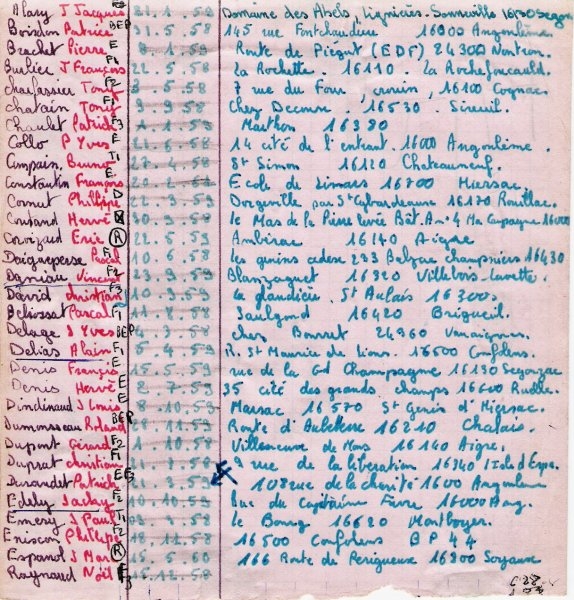 Alary J Jacques 21.1.58 Domaine des Abels, Lignières. Sonneville 16130 Segon
Boisdon Patrice BEP 31.5.58 145 rue Fontchaudiere 16000 Angoulême
Brachet Pierre E .1.59 Route de Piégut (EDF) 24300 Nontron.
J François E 22.5.58 La Rochette. 16110 La Rochefoucauld.
Tony F2 3.5.58 7 rue du Four, crouin, 16100 Cognac.
chatain Tony F1 9.9.58 Chez 16530. Sireuil.
Chaulet Patrick F3 1.1.59 Marthon 16380
Collo P Yves E 21.6.58 14 cité de l'entrant. 16000 Angoulême.
Compain Bruno T1 27.4.58 St Simon 16120 Chateauneuf.
Constantin François E 20.2.58 Ecole de 16700 Mersac.
Cornet Philippe D 22.3.59 par St Cybardeaux 16170 Rouillac.
Coutand Hervé 30.9.58 le Mas de la Pierre levée Bât.A.4 Ma Campagne 16000
Eric R 22.5.59 Ambérac 16140 Aigre
Pascal F1 10.6.58 les 233 Balzac champniers 16430
Daniau Vincent F2 23.9.59 Blanzaguet 16320 Villebois-Lavette.
David christian F3 10.3.59 la glaudière. St Aulais 16300
Pascal F1 11.8.58 Saulgond 16420 Brigueil.
Delage J Yves BEP 4.3.58 chez 24360
Delias Alain F1 5.4.59 R. St Maurice de Lions. 16500 Confolens.
Denis Francis E 15.5.59 rue de la Gd Champagne 16130 Segonzac
Denis Hervé E 2.7.59 35 cité des grands champs 16600 Ruelle.
Dindinaud J Louis E 8.10.59 Marsac 16570 St Genis d'Hiersac.
Dumousseau Roland BEP 28.11.59 Route d'Aubeterre 16210 Chalais.
Dupont Gérard F2 1.10.57 Villeneuve de Mons 16140 Aigre.
Duprat christian F1 21.1.58 9 rue de la libération 16340 Isle d'Espa.
Durandet Patrick F3 21.3.59 108 rue de la charité 1600 Angoulême
Eddy Jacky F2 10.10.59 Rue du Capitaine Favre 16000 Ang.
Emery J Paul T1 .58 le Bourg 16620 Montboyer.
Eriscon Philippe F2 18.12.58 16500 Confolens BP 44
Espanol J Marc R 15.5.60 166 Route de Périgueux 16800 Soyaux
Raynaud Noël F3 15.12.58